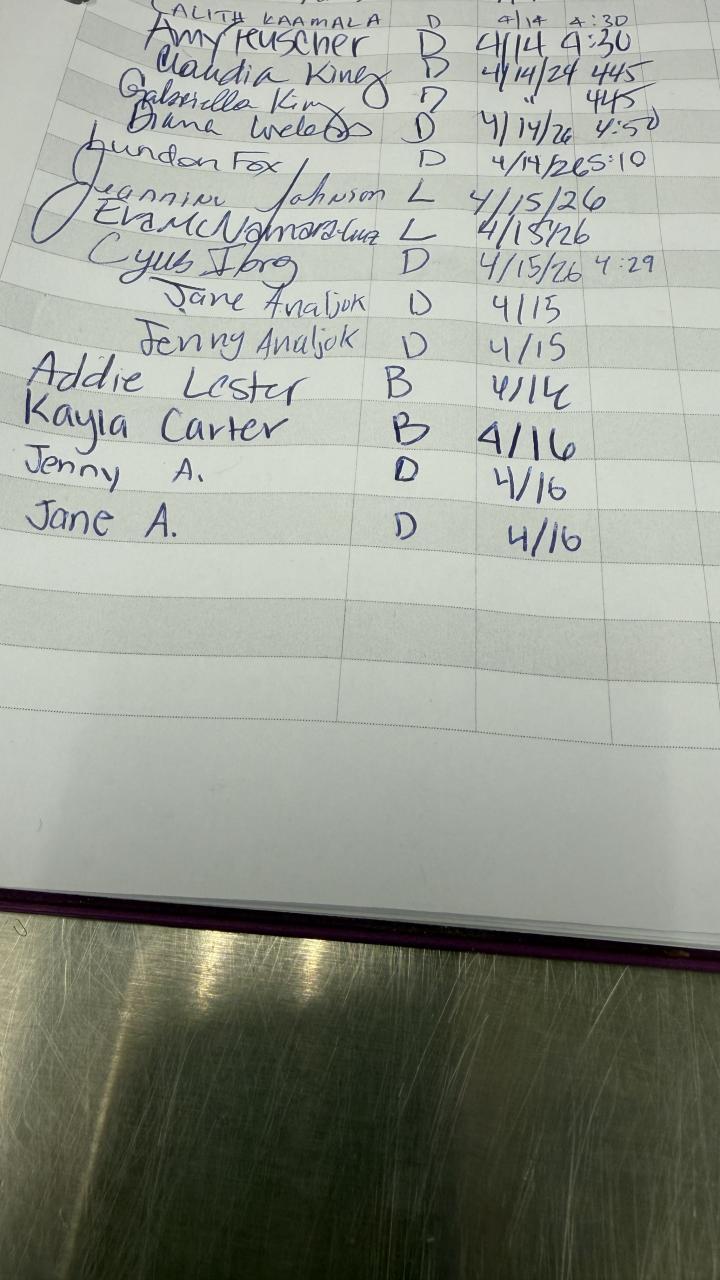 ALITH KAAMALA D 4/14 4:30
Amy Heuscher D 4/14 4:30
Claudia King D 4/14/24 445
Gabriella King D " 445
Diana D 4/14/26 4:50
Lundon Fox D 4/14/26 5:10
Jeannine Johnson L 4/15/26
Eva McNamara-Cruz L 4/15/26
Cyus Ibrg D 4/15/26 4:29
Jane Analjok D 4/15
Jenny Analjok D 4/15
Addie Lester B 4/14
Kayla Carter B 4/16
Jenny A. D 4/16
Jane A. D 4/16